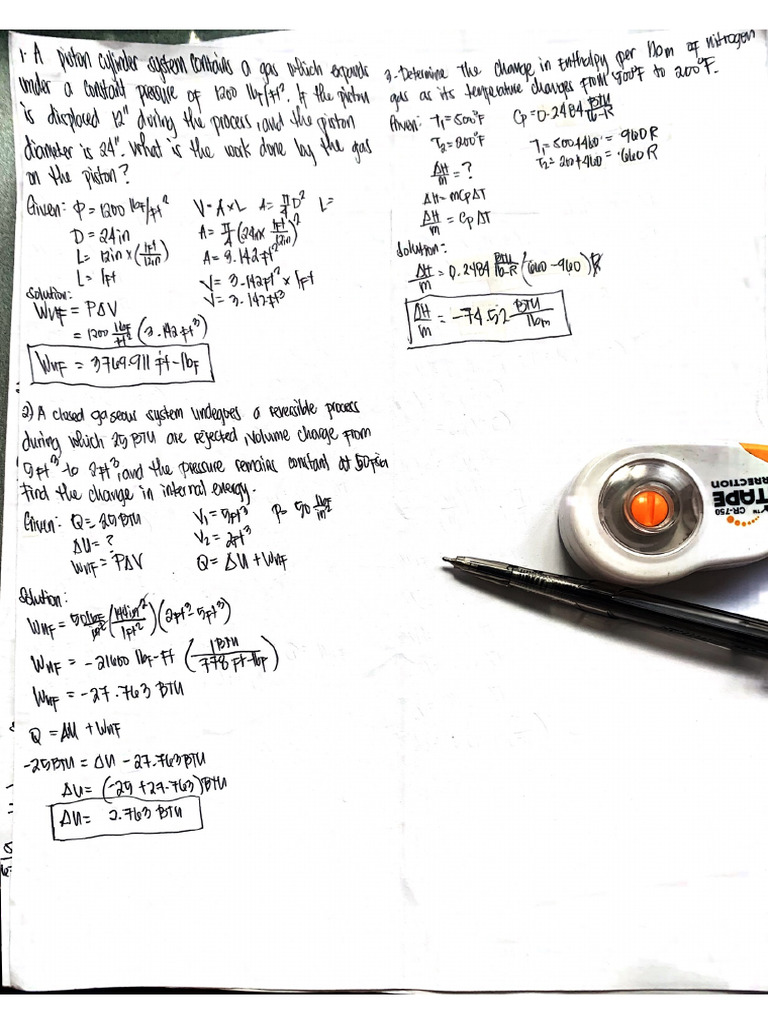 1. A piston cylinder system contains a gas which expands
under a constant pressure of 1200 lb/ft². If the piston
is displaced 12" during the process, and the piston
diameter is 24". What is the work done by the gas
on the piston?
Given: P = 1200 lbF/ft² V = A × L A = π/4 D² L=
D = 24in A = π/4 (24in × 1ft/12in)²
L = 12in × (1ft/12in) A = 3.142 ft²
L = 1ft V = 3.142ft² × 1ft
V = 3.142ft³
Solution:
WNF = PΔV
= 1200 lbF/ft² (3.142ft³)
WNF = 3769.911 ft-lbF
2) A closed gaseous system undergoes a reversible process
during which 25 BTU are rejected, volume change from
5ft³ to 2ft³, and the pressure remains constant at 50psia
Find the change in internal energy.
Given: Q = 25 BTU V₁ = 5ft³ P = 50 lbF/in²
ΔU = ? V₂ = 2ft³
WNF = PΔV Q = ΔU + WNF
Solution:
WNF = 50 lbF/in² (144in²/1ft²)(2ft³ - 5ft³)
WNF = -21600 lbF-ft (1BTU/778 ft-lbF)
WNF = -27.763 BTU
Q = ΔU + WNF
-25BTU = ΔU - 27.763BTU
ΔU = (-25 + 27.763)BTU
ΔU = 2.763 BTU
3. Determine the change in Enthalpy per lbm of nitrogen
gas as its temperature changes from 500°F to 200°F.
Given: T₁ = 500°F Cp = 0.2484 BTU/lb-R
T₂ = 200°F T₁ = 500+460 = 960R
T₂ = 200+460 = 660R
ΔH/m = ?
ΔH = mCpΔT
ΔH/m = CpΔT
Solution:
ΔH/m = 0.2484 BTU/lb-R (660-960)R
ΔH/m = -74.52 BTU/lbm
TAPE
CR-750